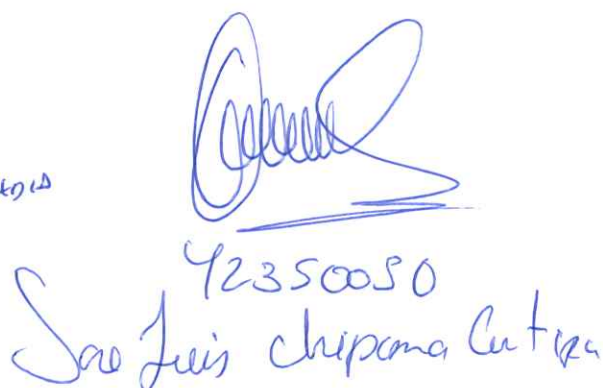 42350050
Jose Luis Chipana Cutipa